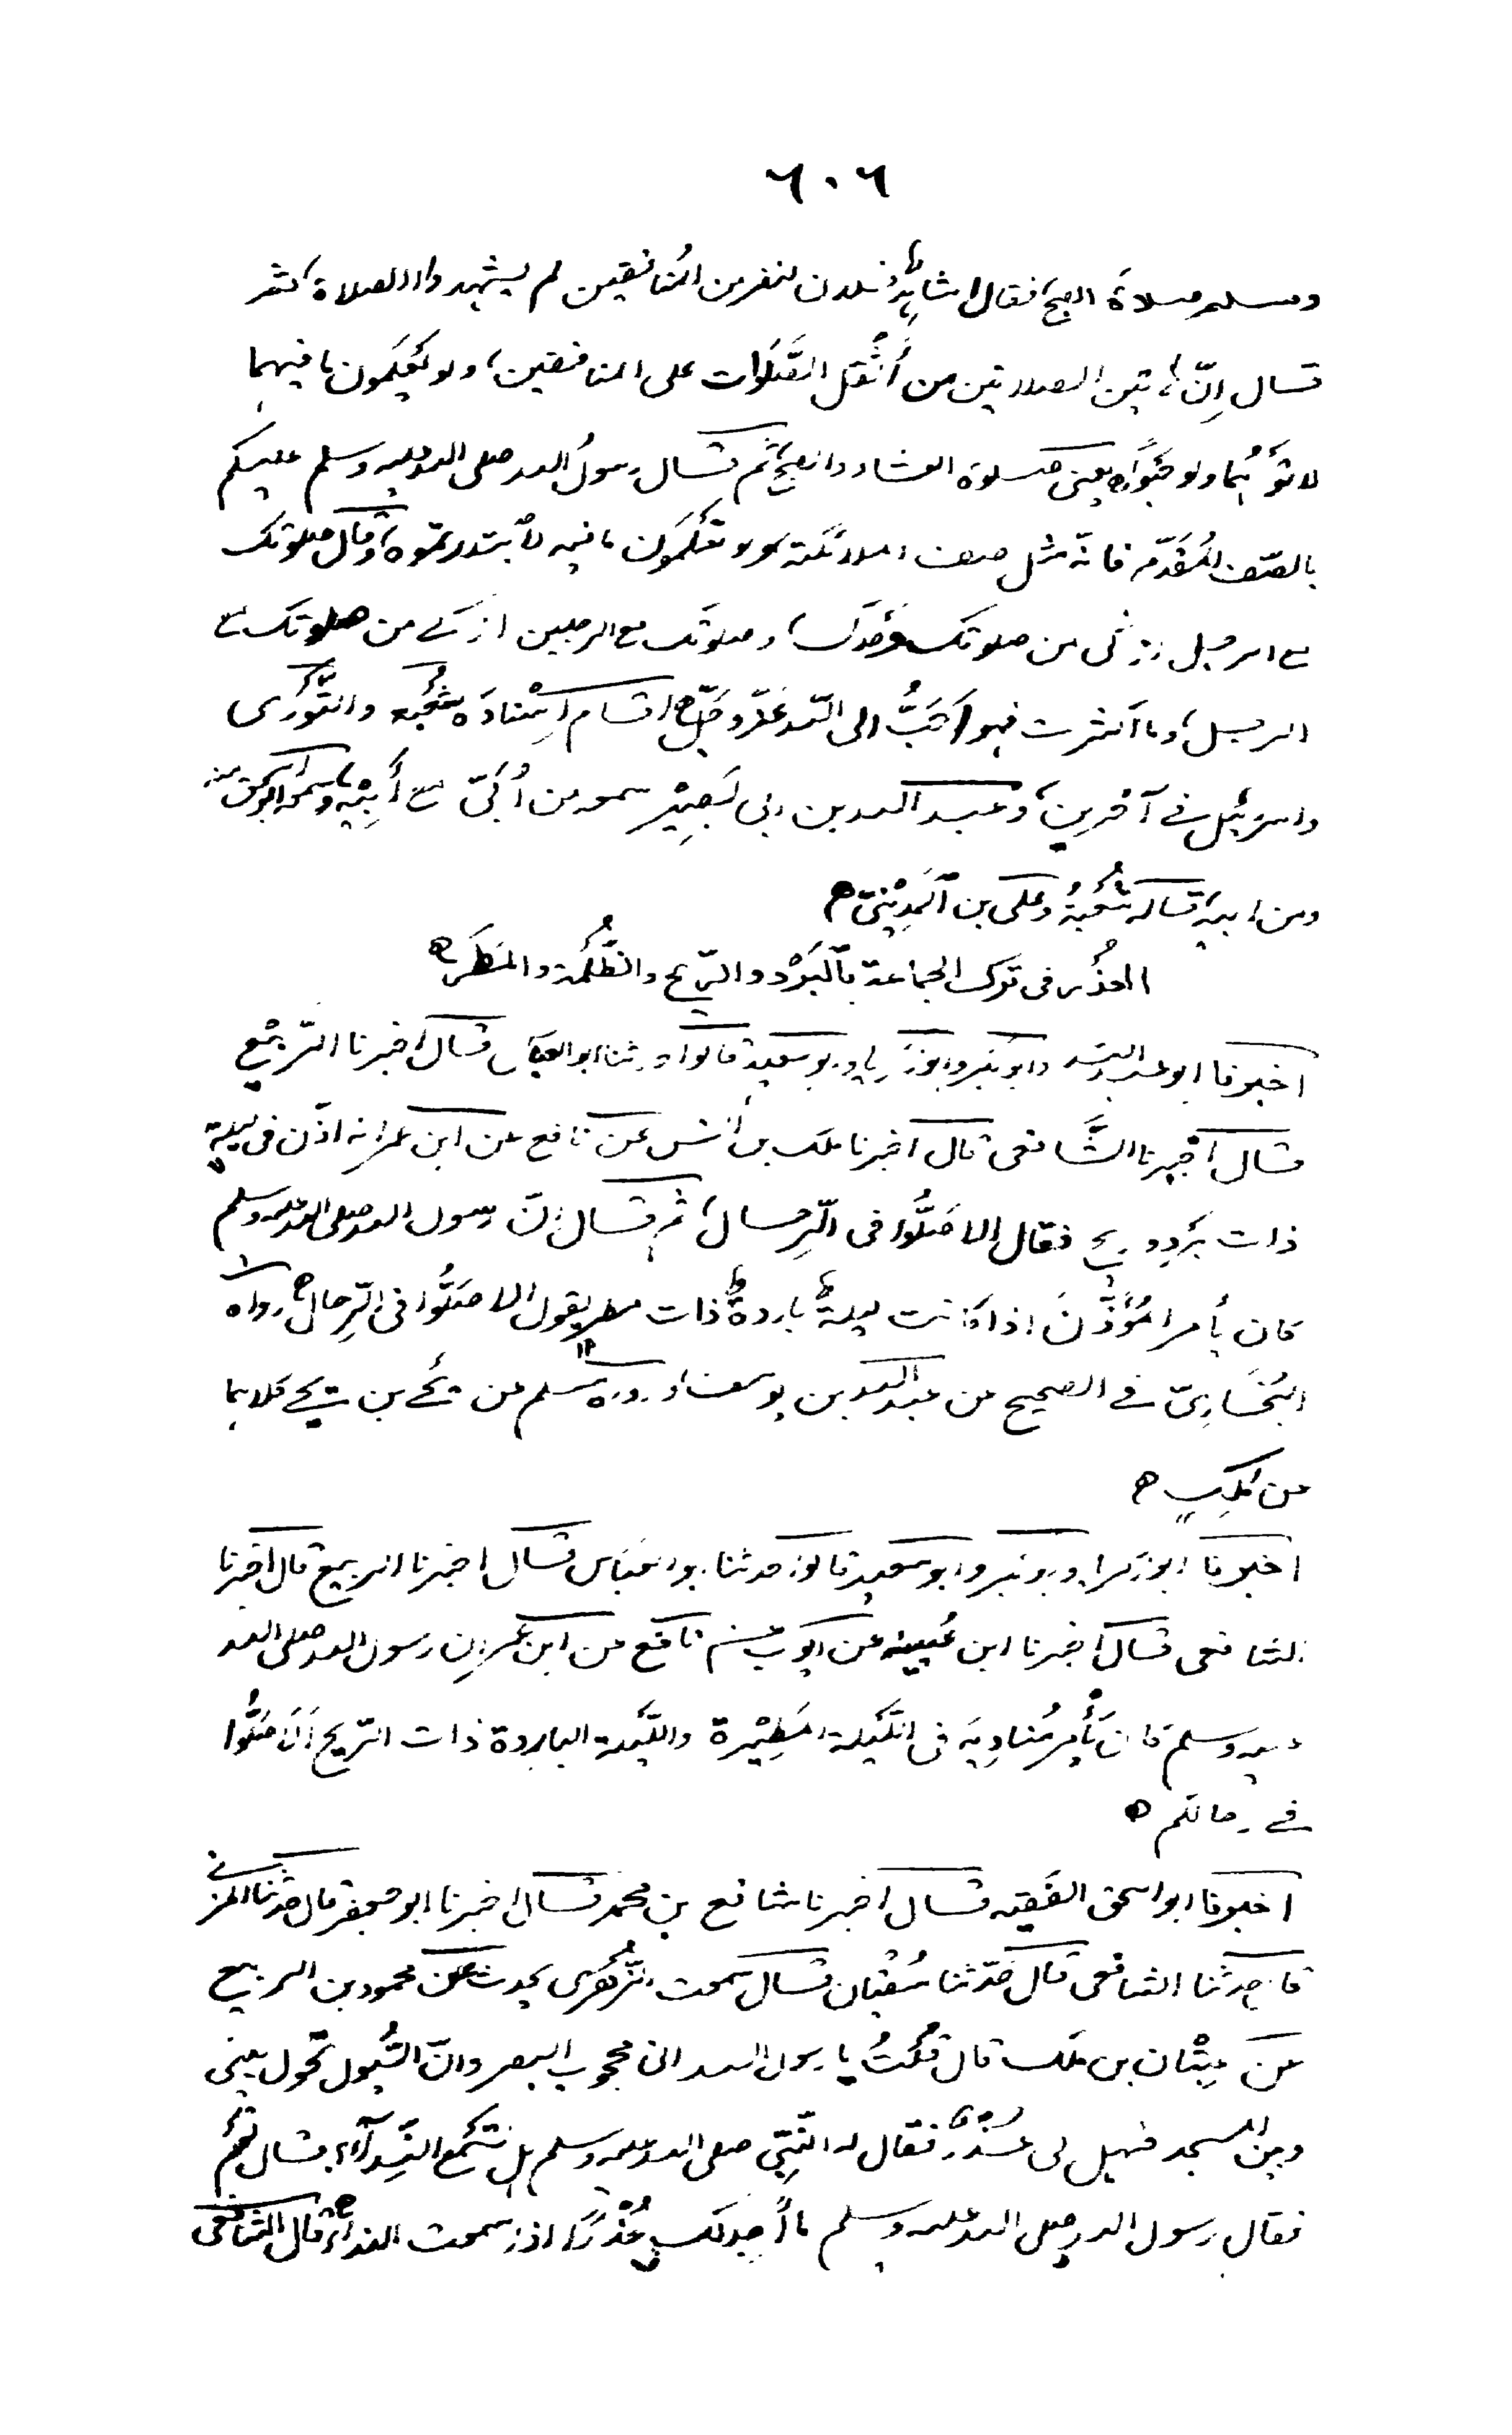 ٦٠٦
وسلم صلاة الصبح فقال أشاهد فلان لنفر من المنافقين لم يشهدوا الصلاة ثم
قال إنّ هاتين الصلاتين من أثقل الصَّلَوات على المنافقين، ولو يَعْلَمون ما فيهما
لأتَوْهُما ولو حَبْوًا، يعنى صلوة العشاء والصبح ثم قال رسولُ الله صلى الله عليه وسلم عليكم
بالصّف المُقَدّم فانّه مثل صف الملائكة ولو تَعْلَمُون ما فيه لأبتدرتموه، وقال صلوتك
مع الرجل أزكى من صلوتك وَحْدَك، وصلوتك مع الرجلين ازكے من صلوتك مع
الرجل، وما أكثرت فهو أحَبُّ الى اللّه عَزّ وجَلّ اقام اسْنادَه شُعْبَه والثَّوْرى
واسرائيل فى آخرين، وعبد الله بن ابى بَصِيْر سمعه من أُبَىّ مع أَبِيْه، وسمعه ابو اسحق منه
ومن ابيه، قاله شُعْبَةُ وعلى بن المَدِيْنِىّ
العذُر فى ترك الجماعة بالبَرْد والرّيح والظُّلْمة والمَطَر
اخبرنا ابو عبد الله وابو بكر وابو زكريا وابو سعيد قالوا حدثنا ابو العباس قال اخبرنا الرّبِيْع
قال اخْبرنا الشَّافعى قال اخبرنا ملك بن أنس عن نافع عن ابن عمر انه اذّن فى ليلة
ذات بَرْدٍ وريح فقال الا صَلُّوا فى الرّحال، ثم قال إنّ رسول الله صلى الله عليه وسلم
كان يأمر المُؤَذّنَ اذا كانت ليلةٌ باردةٌ ذات مطر يقول الا صَلُّوا فى الرّحال رواه
البُخَارِىّ فے الصحيح عن عبد الله بن يوسف، ورواه مسلم عن يَحْيى بن يحيى كلاهما
عن مٰلِكٍ
اخبرنا ابو زكريا وابو بكر وابو سعيد قالوا حدثنا ابو العَبّاس قال اخبرنا الربيع قال اخبرنا
الشافعى قال اخبرنا ابن عُيينه عن ايّوب عن نافع عن ابن عمر ان رسول الله صلى الله
عليه وسلم كان يَأْمر مُنادِيَه فى اللَّيْلة المَطِيْرة واللَّيْلة الباردة ذات الرّيح اَلا صَلُّوا
فے رحالكم
اخبرنا ابو اسحق الفَقِيْه قال اخبرنا شافع بن محمد قال اخبرنا ابو جعفر قال حدثنا المزنى
قال حدثنا الشافعى قال حَدّثنا سُفْيان قال سمعت الزُّهْرى يحدث عن محمود بن الربيع
عَن عِتْبان بن ملك قال قُلْتُ يا رسول الله انى محجوب البصر وانّ السُّيول تَحُول بينى
وبين المسجد فهل لى عذر، فقال له النَّبِىّ صلى الله عليه وسلم هل تَسْمَع النِّدآء؟ قال نَعَم
فقال رسول الله صلى الله عليه وسلم ما أجد لك عُذْرًا اذا سمعت النداء، قال الشافعى